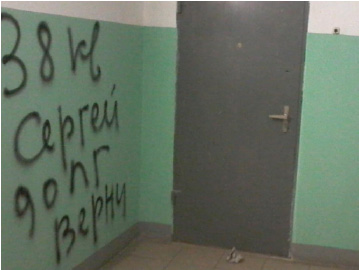 38 кв
Сергей
90 пг
верни